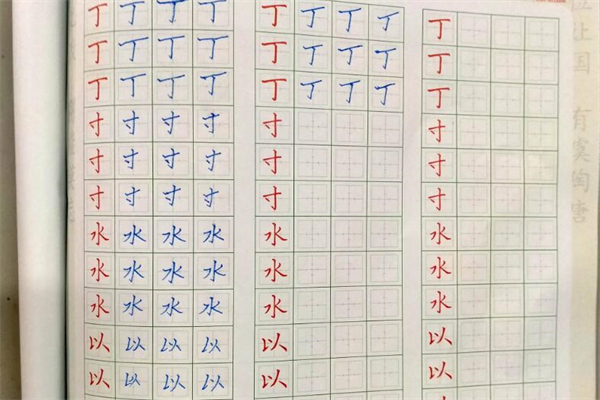 丁丁丁丁
丁丁丁丁
丁丁丁丁
寸寸寸寸
寸寸寸寸
寸寸寸寸
水水水水
水水水水
水水水水
以以以以
以以以以
丁丁丁丁
丁丁丁丁
丁丁丁丁
寸
寸
寸
水
水
水
以
以
丁
丁
丁
寸
寸
寸
水
水
水
以
以
位让国 有虞陶唐